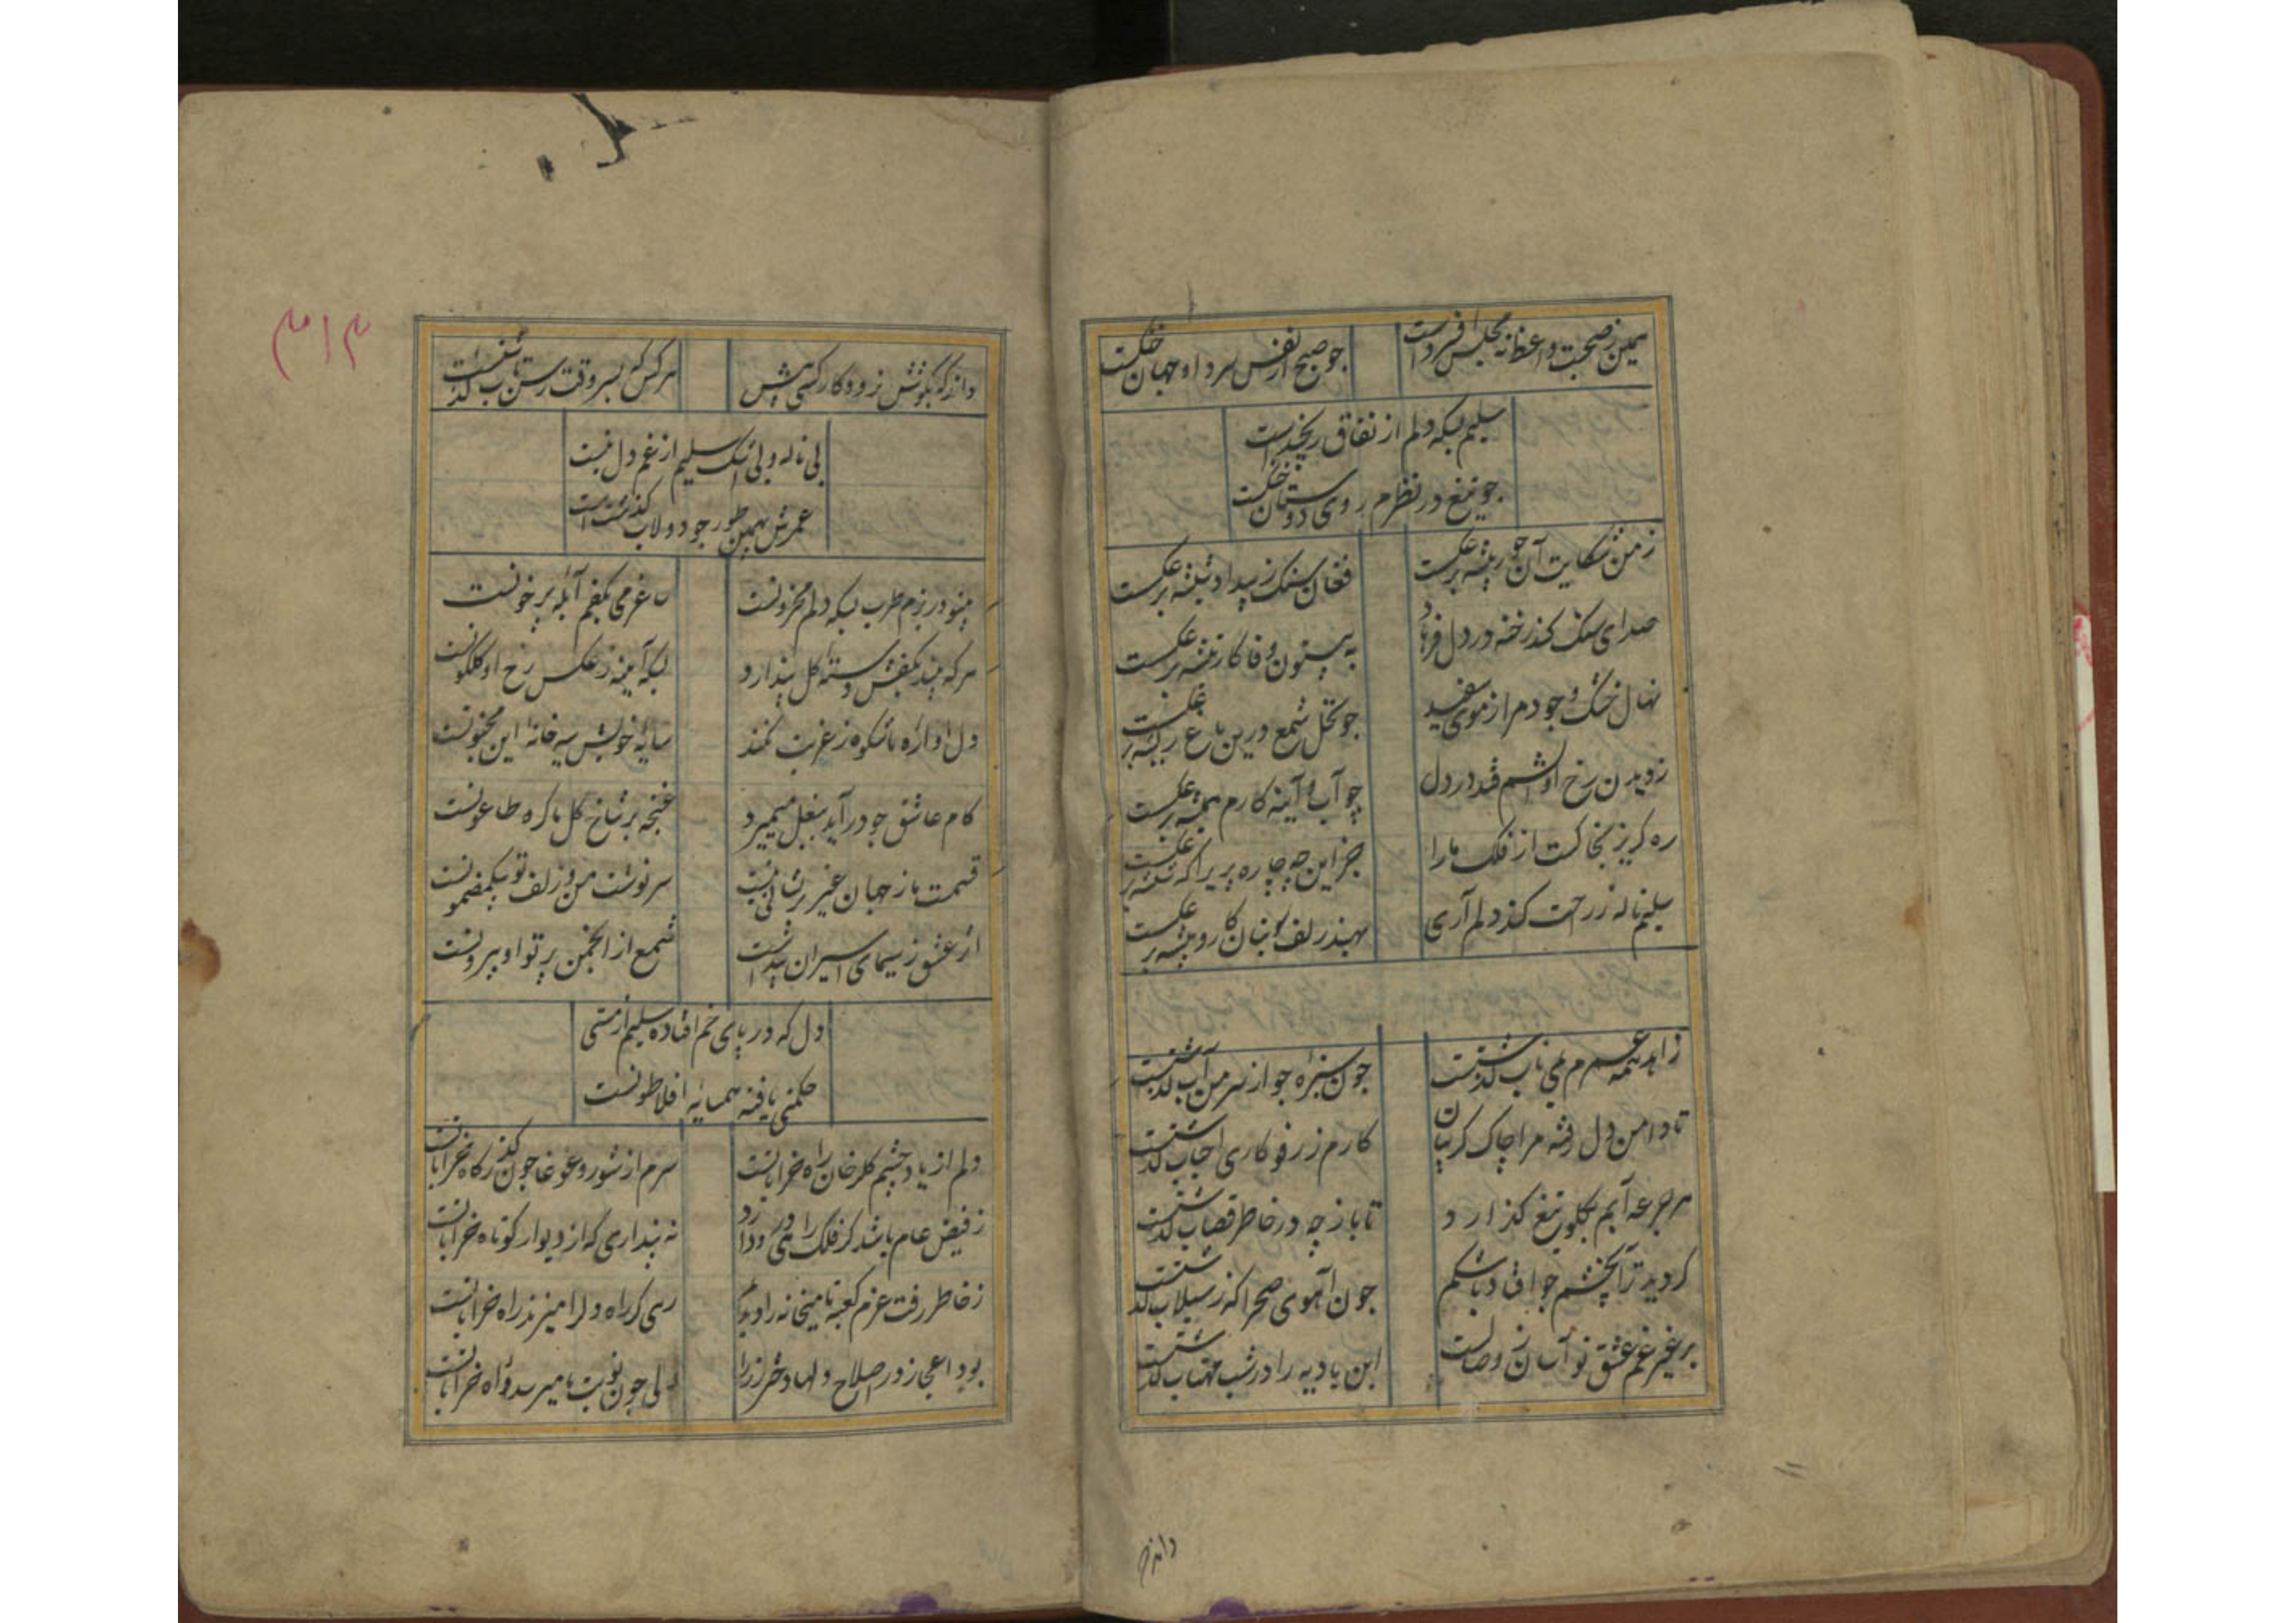 همین ز صحبت واعظ نه مجلس افسردست
چو صبح از نفس سرد او جهان خنکست
سلیم بسکه دلم از نفاق رنجیدست
چو تیغ در نظرم روی دوستان خنکست
ز من شکایت آن جور پیشه برعکست
فغان سنک ز بیداد تیشه برعکست
صدای سنک کند رخنه در دل فرهاد
به بیستون وفا کار تیشه برعکست
نهال خشک وجود مرا ز موی سفید
چو نخل شمع درین باغ ریشه برعکست
ز دیدن رخ او اشکم فتد در دل
چو آب و آینه کارم همیشه برعکست
ره کریز بخاکست از فلک ما را
جز این چه چاره پری را که شیشه برعکست
سلیم ناله ز راحت کند دلم آری
بهند زلف بتان کار و پیشه برعکست
زاهد همه عمرم بمی ناب کذشتست
چون سبزه جو از سر من آب کذشتست
تا دامن دل رفته مرا چاک کریبان
کارم ز رفوکاری احباب کذشتست
هر جرعه آبم بکلو تیغ کذارد
تا باز چه در خاطر قصاب کذشتست
کردید ترا چشم چو افتاد باشکم
چون آهوی صحرا که ز سیلاب کذشتست
بر غیر غم عشق تو آسان ز وصالت
این بادیه را در شب مهتاب کذشتست
داند که
۳۱۳
داند که بکوشش نرود کار کسی پیش
هر کس که بسروقت رسن تاب کذشتست
بی ناله و بی اشک سلیم از غم دل نیست
عمرش بهمین طور چو دولاب کذشتست
بیتو در بزم طرب بسکه دلم محزونست
ساغر می بکفم آبله پر خونست
هر که بیند بکفش دسته کل پندارد
بسکه آیینه ز عکس رخ او کلکونست
دل آواره ما شکوه ز غربت نکند
سایه خویش سیه خانه این مجنونست
کام عاشق چو در آید ببغل میمیرد
غنچه بر شاخ کل ما کره طاعونست
قسمت ما ز جهان غیر پریشانی نیست
سرنوشت من و زلف تو بیکمضمونست
اثر عشق ز سیمای اسیران پیداست
شمع از انجمن پرتو او بیرونست
دل که در پای خم افتاده سلیم از مستی
حکمتی یافته همسایه افلاطونست
دلم از یاد چشم کلرخان راه خراباتست
سرم از شور و غوغا چون کذرکاه خراباتست
ز فیض عام باشد کر فلک را می دود در زد
نه پنداری که از دیوار کوتاه خراباتست
ز خاطر رفت عزم کعبه تا میخانه را دیدم
رهی کز راه دلرا میزند راه خراباتست
بود اعجاز در اصلاح دلها دختر رز را
ولی چون نوبت ما میرسد واه خراباتست